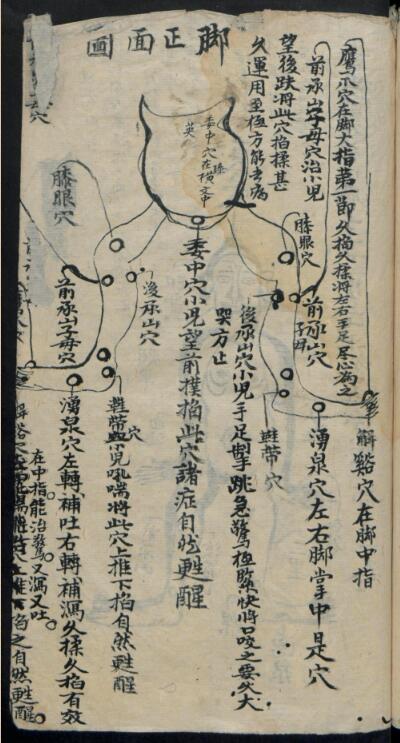 脚正面圖
鷹爪穴在脚大指第一節久掐久揉將左右手足尽心為之
前承山字母穴治小兒
望後跌將此穴掐揉甚
久運用至極方能去病
委中穴在
橫文中
膝眼穴
膝眼穴
前承山穴
子母
解谿穴在脚中指
湧泉穴左右脚掌中是穴
鞋帶穴
後承山穴小兒手足掣跳急驚極緊快將口咬之要久大
哭方止
委中穴小兒望前撲掐此穴諸症自然甦醒
後承山穴
鞋帶穴小兒吼喘將此穴上推下掐自然甦醒
前承山字母穴
湧泉穴左轉補吐右轉補瀉久揉久掐有效
在中指能治驚又瀉又吐
掐之自然甦醒